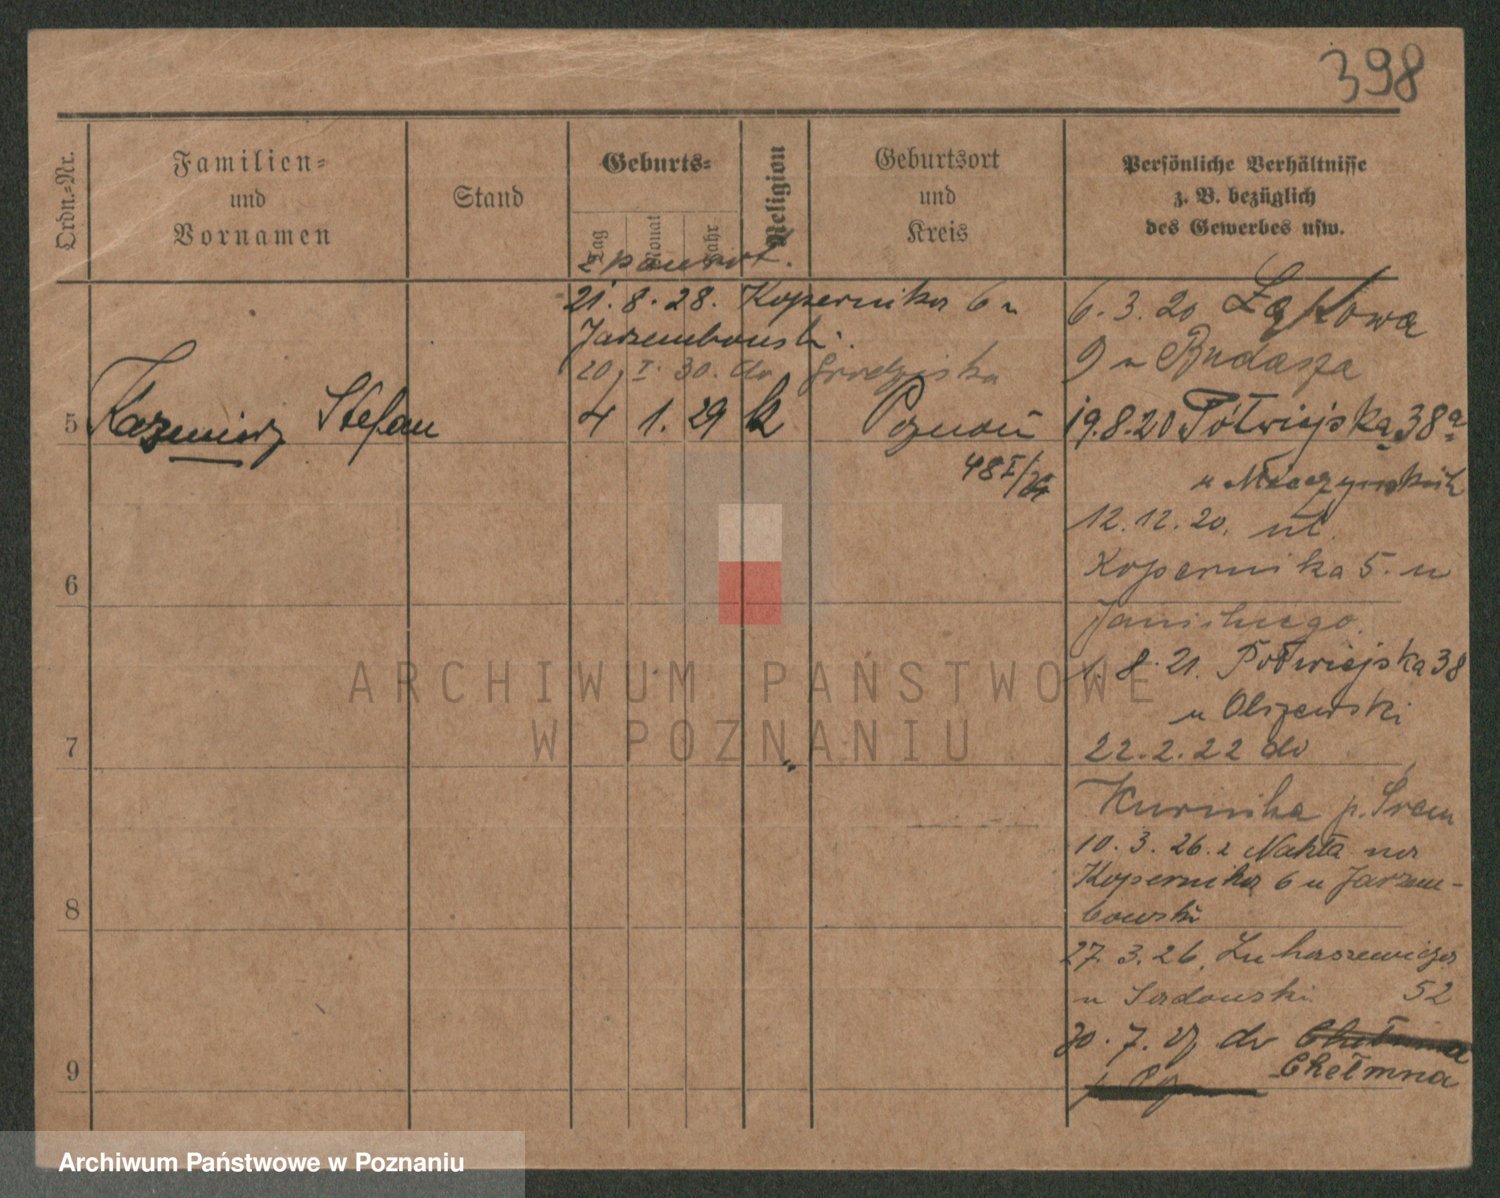 398
Ordn.-Nr.
Familien-
und
Vornamen
Stand
Geburts-
Tag
Monat
Jahr
Religion
Geburtsort
und
Kreis
Persönliche Verhältnisse
z. B. bezüglich
des Gewerbes usw.
z powrot.
21. 8. 28. Kopernika 6 u
Jarzembowski.
20. I. 30. do Grodziska
5 Kazimierz Stefan 4 1. 29 k Poznań
48 I/
6. 3. 20 Łąkowa
9 u Budasza
19.8.20 Półwiejska 38a
u
12.12.20. ul.
Kopernika 5. u
Janickiego.
1. 8. 21. Półwiejska 38
u Olszewski
22. 2. 22 do
Kurnika p. Śrem
10. 3. 26. z Nakła na
Kopernika 6 u Jarzem-
bowski
27. 3. 26. Łukaszewicza
u Sadowski 52
30. 7. 27 do Chełmna
Chełmna
6
7
8
9
ARCHIWUM PAŃSTWOWE
W POZNANIU
Archiwum Państwowe w Poznaniu